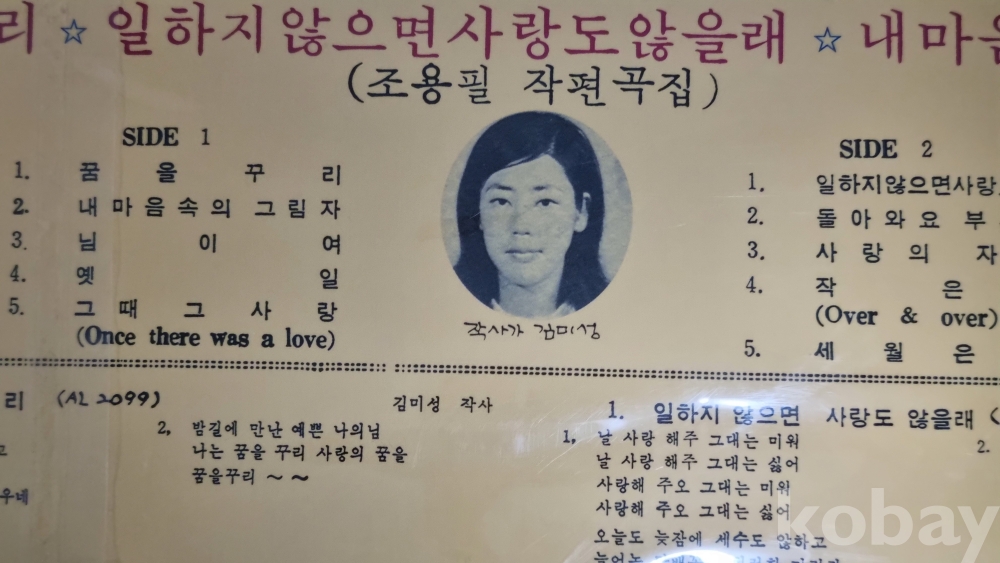 리 ☆ 일하지않으면사랑도않을래 ☆ 내마음
(조용필 작편곡집)
SIDE 1
1. 꿈을꾸리
2. 내마음속의그림자
3. 님이여
4. 옛일
5. 그때그사랑
(Once there was a love)
작사가 김미성
SIDE 2
1. 일하지않으면사랑
2. 돌아와요부
3. 사랑의자
4. 작은
(Over & over)
5. 세월은
리 (AL 2099)
김미성 작사
2, 밤길에 만난 예쁜 나의님
나는 꿈을 꾸리 사랑의 꿈을
꿈을꾸리 ~ ~
우네
1. 일하지 않으면 사랑도 않을래 (
1, 날 사랑 해주 그대는 미워
날 사랑 해주 그대는 싫어
사랑해 주오 그대는 미워
사랑해 주오 그대는 싫어
오늘도 늦잠에 세수도 않하고
2.
kobay